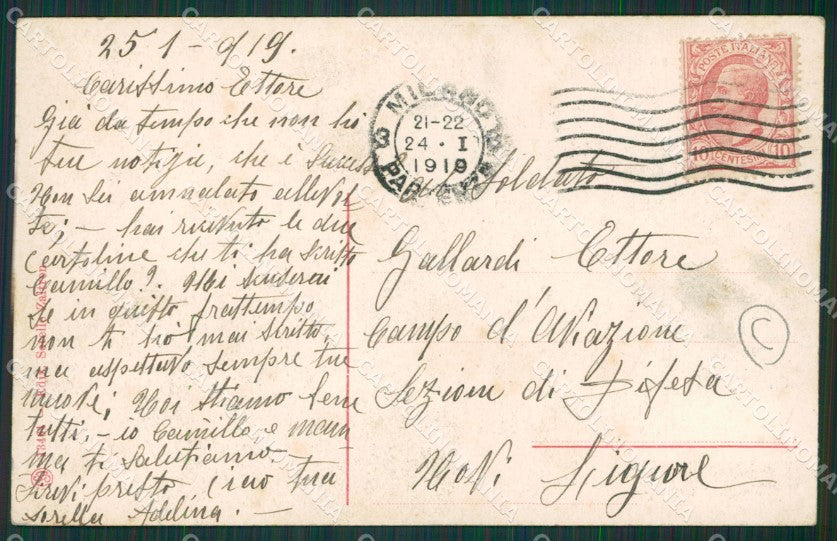 25 1 - 919.
Carissimo Ettore
Già da tempo che non ho
tue notizie, che è success
Non sei ammalato alle vol
te; - hai ricevuto le due
cartoline che ti ha scritto
Camillo?. Mi scuserai
se in questo frattempo
non ti ho mai scritto,
ma aspettavo sempre tue
nuove; Noi stiamo bene
tutti, - io Camillo e mam
ma ti salutiamo -
scrivi presto ciao tua
sorella Adelina. -
MILANO
21-22
24 · I
1919
PARTENZA
POSTE ITALIANE
10 CENTESIMI 10
Soldato
Gallardi Ettore
Campo d'Aviazione
Sezione di Difesa
Novi Ligure
C
CARTOLINOMANIA